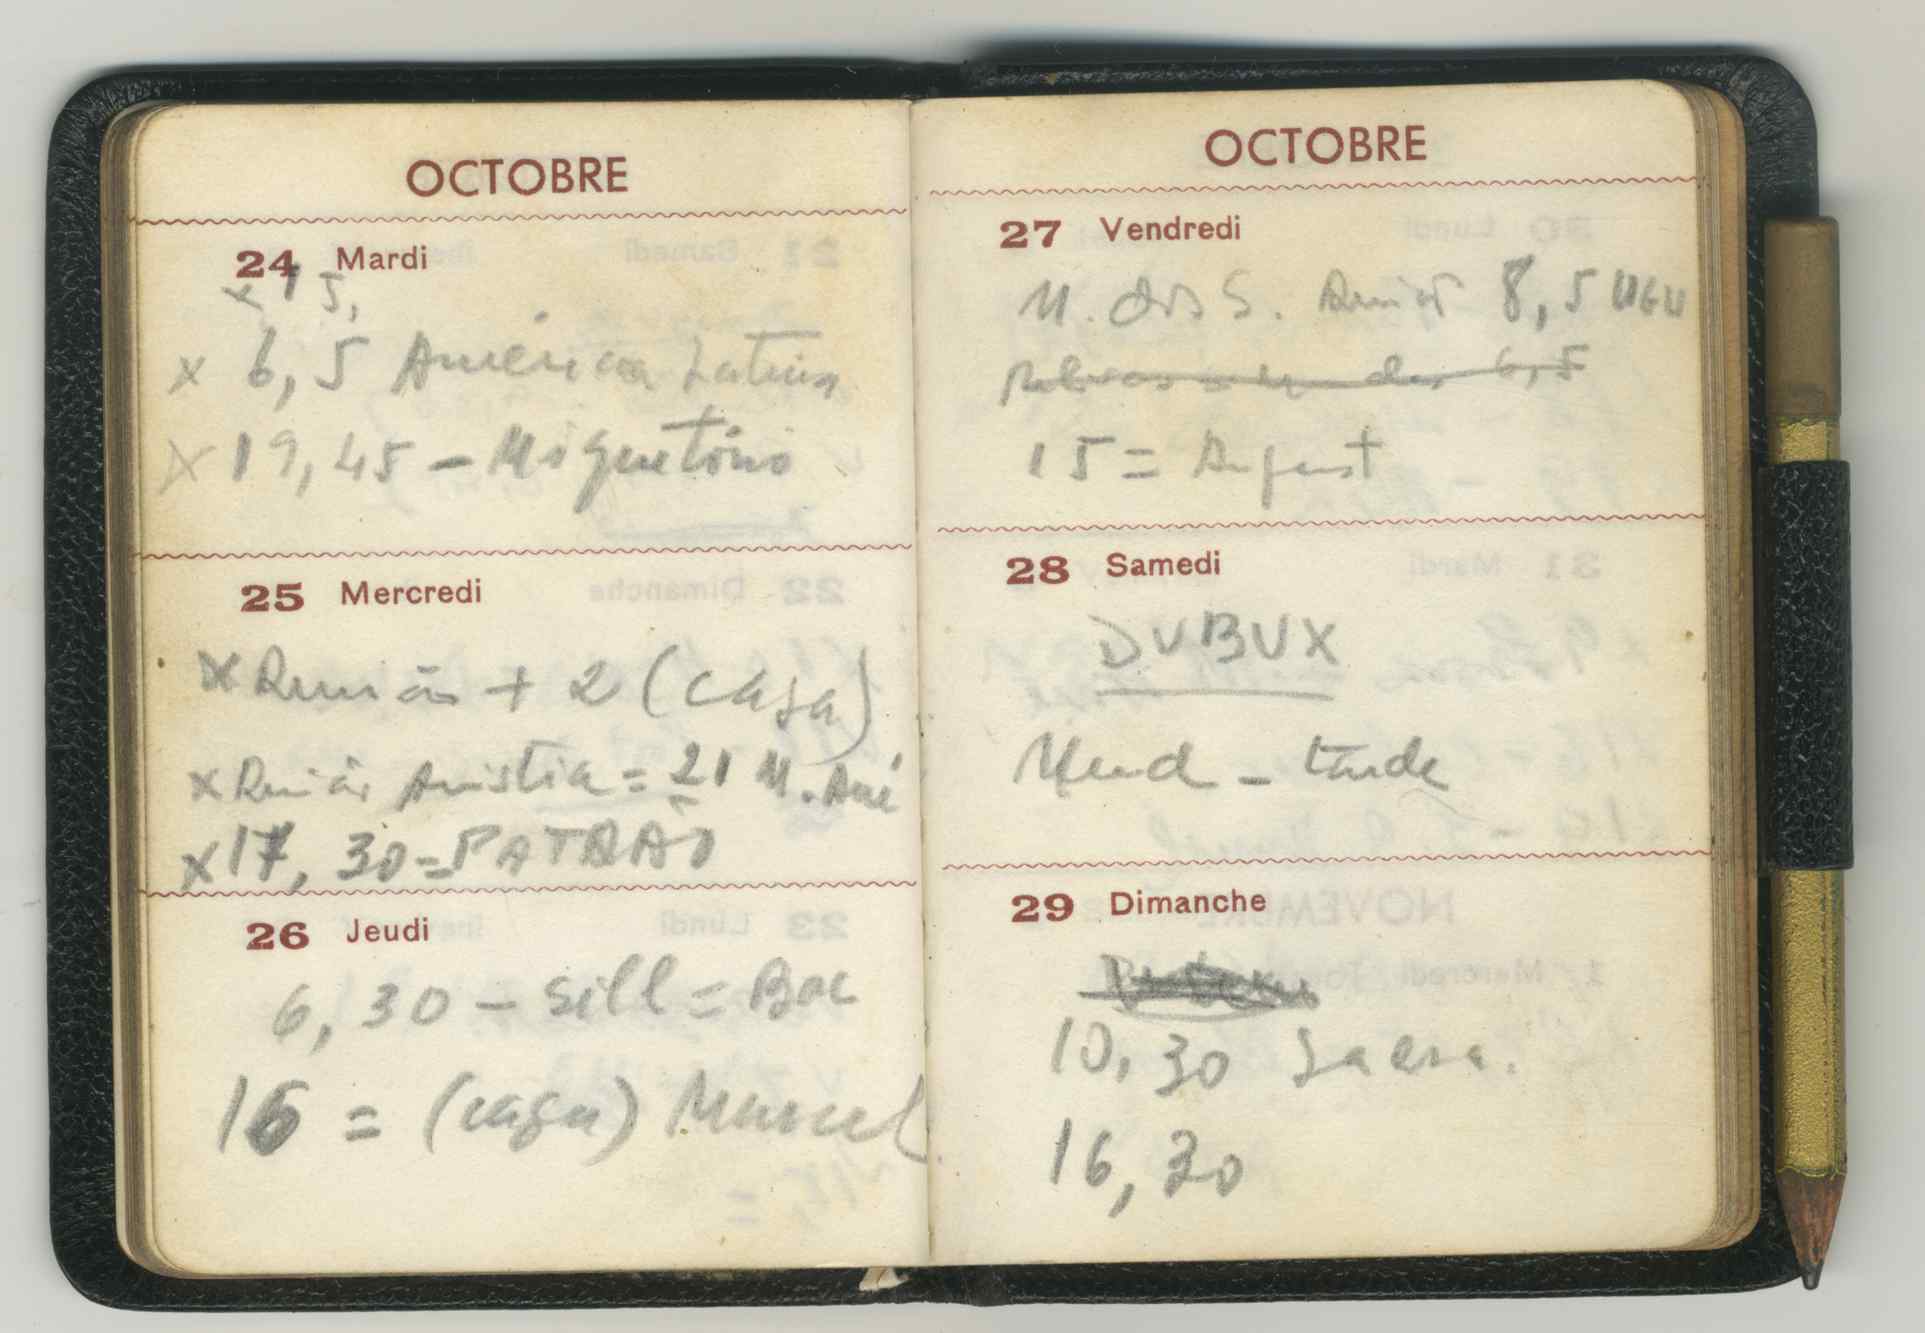 OCTOBRE
24 Mardi
x 15,
x 6,5 América Latina
x 19,45 – Miguetónio
25 Mercredi
x Reunião + 2 (casa)
x Reunião Amistia = 21 M.
x 17,30 = PATRÃO
26 Jeudi
6,30 – sill = Bac
16 = (casa) Marcel
OCTOBRE
27 Vendredi
M. dos S. 8,5
6,5
15 = August
28 Samedi
DUBUX
Mend – tarde
29 Dimanche
10,30
16,30